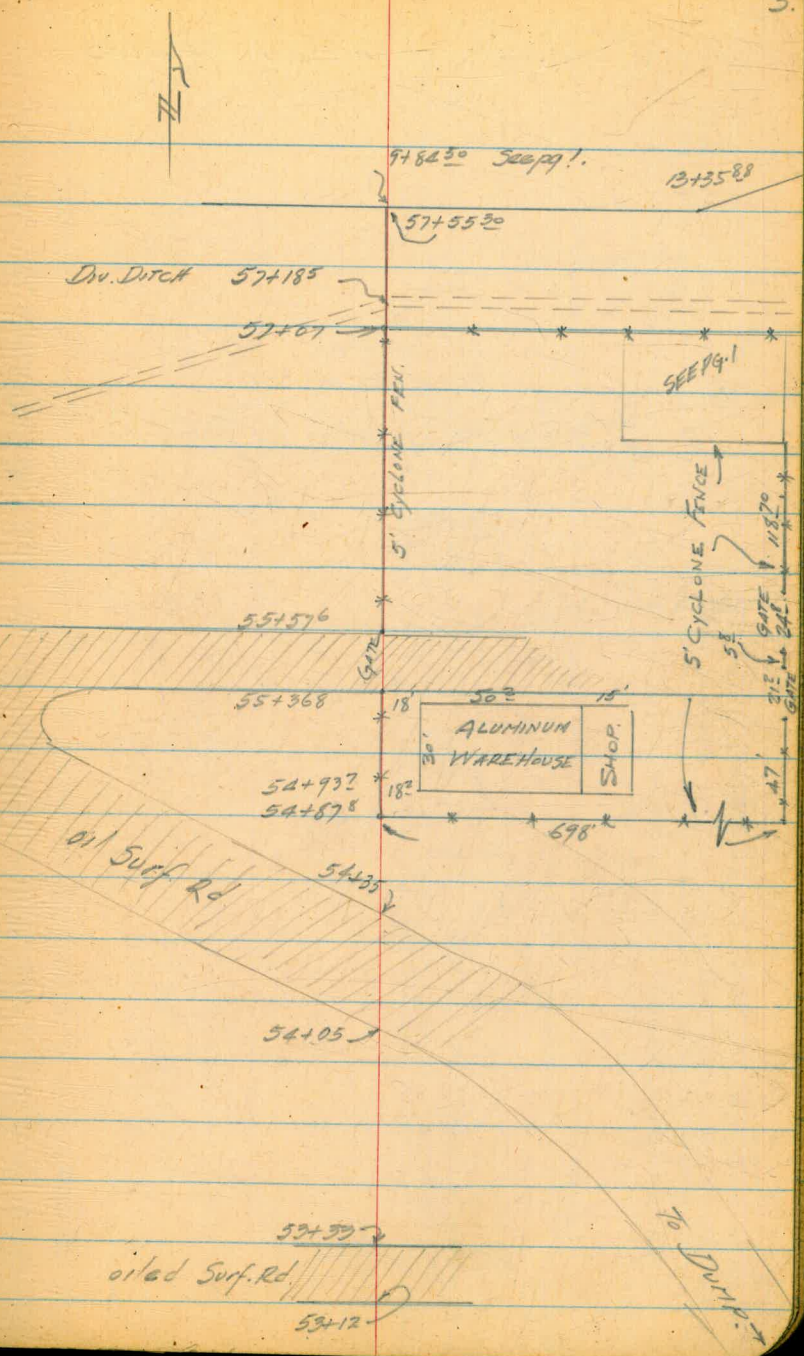 3.
N
9+84 50 See pg 1.
13+35 88
57+55 30
Div. Ditch 57+18 5
57+07
SEE PG. 1
5' CYCLONE FEN.
5' CYCLONE FENCE
118 70
GATE
24 8
5 8
21 2
GATE
47'
55+57 6
GATE
55+36 8
18'
50 2
15'
ALUMINUM
WAREHOUSE
30'
SHOP.
54+93 7
18 2
54+87 8
698'
oil Surf Rd
54+35
54+05
53+33
oiled Surf. Rd.
53+12
To Dump.